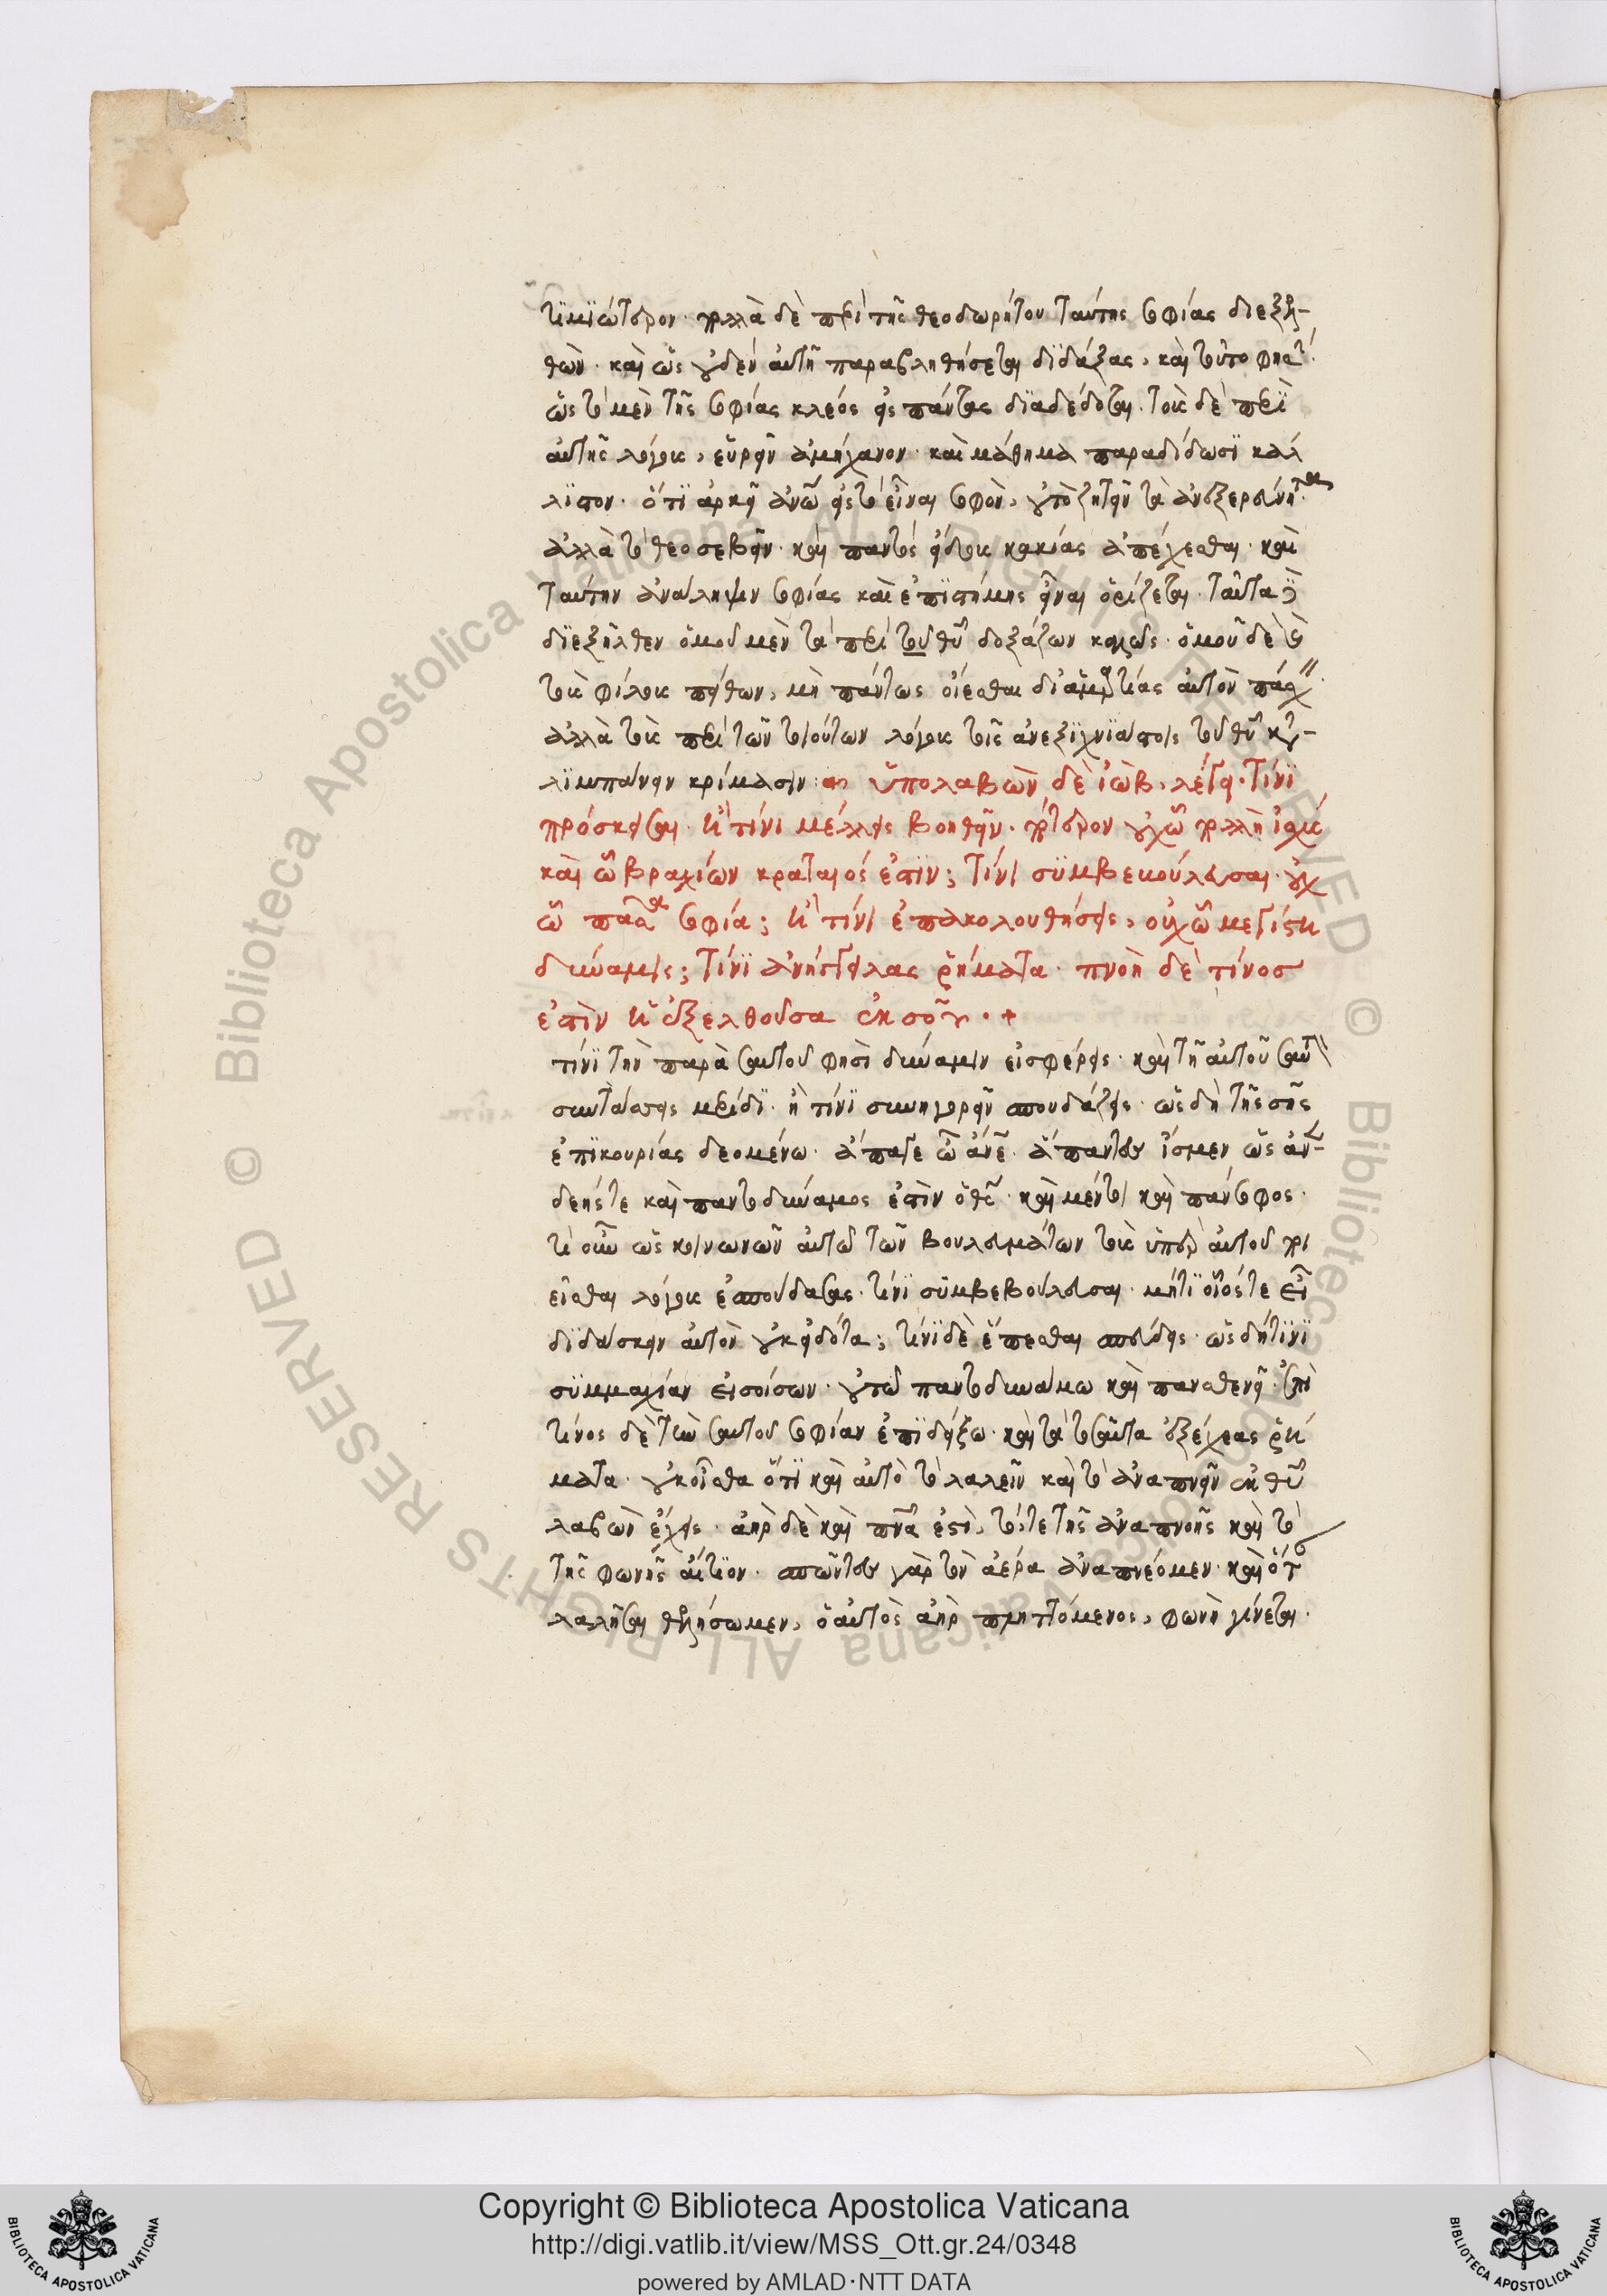 τιμιώτερον. πολλὰ δὲ περὶ τῆς θεοδωρήτου ταύτης σοφίας διεξελ-
θὼν. καὶ ὡς οὐδὲν αὐτῇ παραβληθήσεται διδάξας, καὶ τοῦτο φησί.
ὡς τὸ μὲν τῆς σοφίας κλέος εἰς πάντας διαδέδοται. τοῖς δὲ περὶ
αὐτῆς λόγοις, εὑρεῖν ἀμήχανον. καὶ μάθημα παραδίδωσι κάλ
λιστον. ὅτι ἀρκεῖ ἀνω εἰς τὸ εἶναι σοφὸν, οὐ τὸ ζητεῖν τὰ ἀνεξερεύνητα
ἀλλὰ τὸ θεοσεβεῖν. καὶ παντὸς εἴδους κακίας ἀπέχεσθαι. καὶ
ταύτην ἀνάληψιν σοφίας καὶ ἐπιστήμης εἶναι ὁρίζεται. ταῦτα
διεξῆλθεν ὁμοῦ μὲν τὰ περὶ τοῦ θυ δοξάζων καλῶς. ὁμοῦ δὲ καὶ
τοὺς φίλους πείθων, μὴ πάντως οἴεσθαι δι ἁμαρτίας αὐτὸν πάσχειν.
ἀλλὰ τοὺς περὶ τῶν τοιούτων λόγους τοῖς ἀνεξιχνιάστοις τοῦ θυ κα-
λιμπάνειν κρίμασιν: ὑπολαβὼν δὲ ἰὼβ, λέγει. τίνι
πρόσκεισαι. ἢ τίνι μέλλεις βοηθεῖν. πότερον οὐχ ὧ πολλὴ ἰσχύς
καὶ ὧ βραχίων κραταιός ἐστιν; τίνι συμβεβούλευσαι. οὐχ
ὧ πᾶσα σοφία; ἢ τίνι ἐπακολουθήσεις, οὐχ ὧ μεγίστη
δύναμις; τίνι ἀνήγγειλας ῥήματα. πνοὴ δὲ τίνοσ
ἐστὶν ἡ ἐξελθοῦσα ἐκ σοῦ. +
τίνι τὴν παρὰ σαυτοῦ φησὶ δύναμιν εἰσφέρεις. καὶ τῇ αὐτοῦ σαυτὸν
συντάσσεις μερίδι. ἢ τίνι συνηγορεῖν σπουδάζεις. ὡς δὴ τῆς σῆς
ἐπικουρίας δεομένω. ἄπαγε ὦ ἄνε. ἅπαντες ἴσμεν ὡς ἀν-
δεής τε καὶ παντοδύναμος ἐστὶν ὁ θς. καὶ μέντοι καὶ πάνσοφος.
τί οὖν ὡς κοινωνῶν αὐτῶ τῶν βουλευμάτων τοὺς ὑπὲρ αὐτοῦ ποι
εῖσθαι λόγους ἐσπούδασας. τίνι συμβεβούλευσαι. μήτι οἷός τε εἶ
διδάσκειν αὐτὸν οὐκ εἰδότα; τίνι δὲ ἕπεσθαι σπεύδεις. ὡς δή τινι
συμμαχίαν εἰσοίσων. οὐ τῶ παντοδυνάμω καὶ πανσθενεῖ. ἐπὶ
τίνος δὲ τὴν σαυτοῦ σοφίαν ἐπιδείξω. καὶ τὰ τοσαῦτα ἐξέχεας ῥή
ματα. οὐκ οἶσθα ὅτι καὶ αὐτὸ τὸ λαλεῖν καὶ τὸ ἀναπνεῖν ἐκ θυ
λαβὼν ἔχεις. ἀὴρ δὲ καὶ πνα ἐστὶ, τό τε τῆς ἀναπνοῆς καὶ τὸ
τῆς φωνῆς αἴτιον. σπῶντες γὰρ τὸν ἀέρα ἀναπνέομεν. καὶ ὅτε
λαλῆσαι θελήσωμεν, ὁ αὐτὸς ἀὴρ πληττόμενος, φωνὴ γίνεται.
Copyright © Biblioteca Apostolica Vaticana
http://digi.vatlib.it/view/MSS_Ott.gr.24/0348
powered by AMLAD·NTT DATA